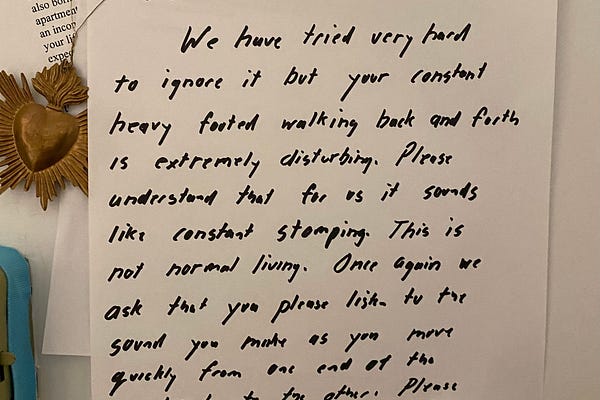 also both
apartmen
an incon
your lif
expec
We have tried very hard
to ignore it but your constant
heavy footed walking back and forth
is extremely disturbing. Please
understand that for us it sounds
like constant stomping. This is
not normal living. Once again we
ask that you please listen to the
sound you make as you move
quickly from one end of the
to the other. Please